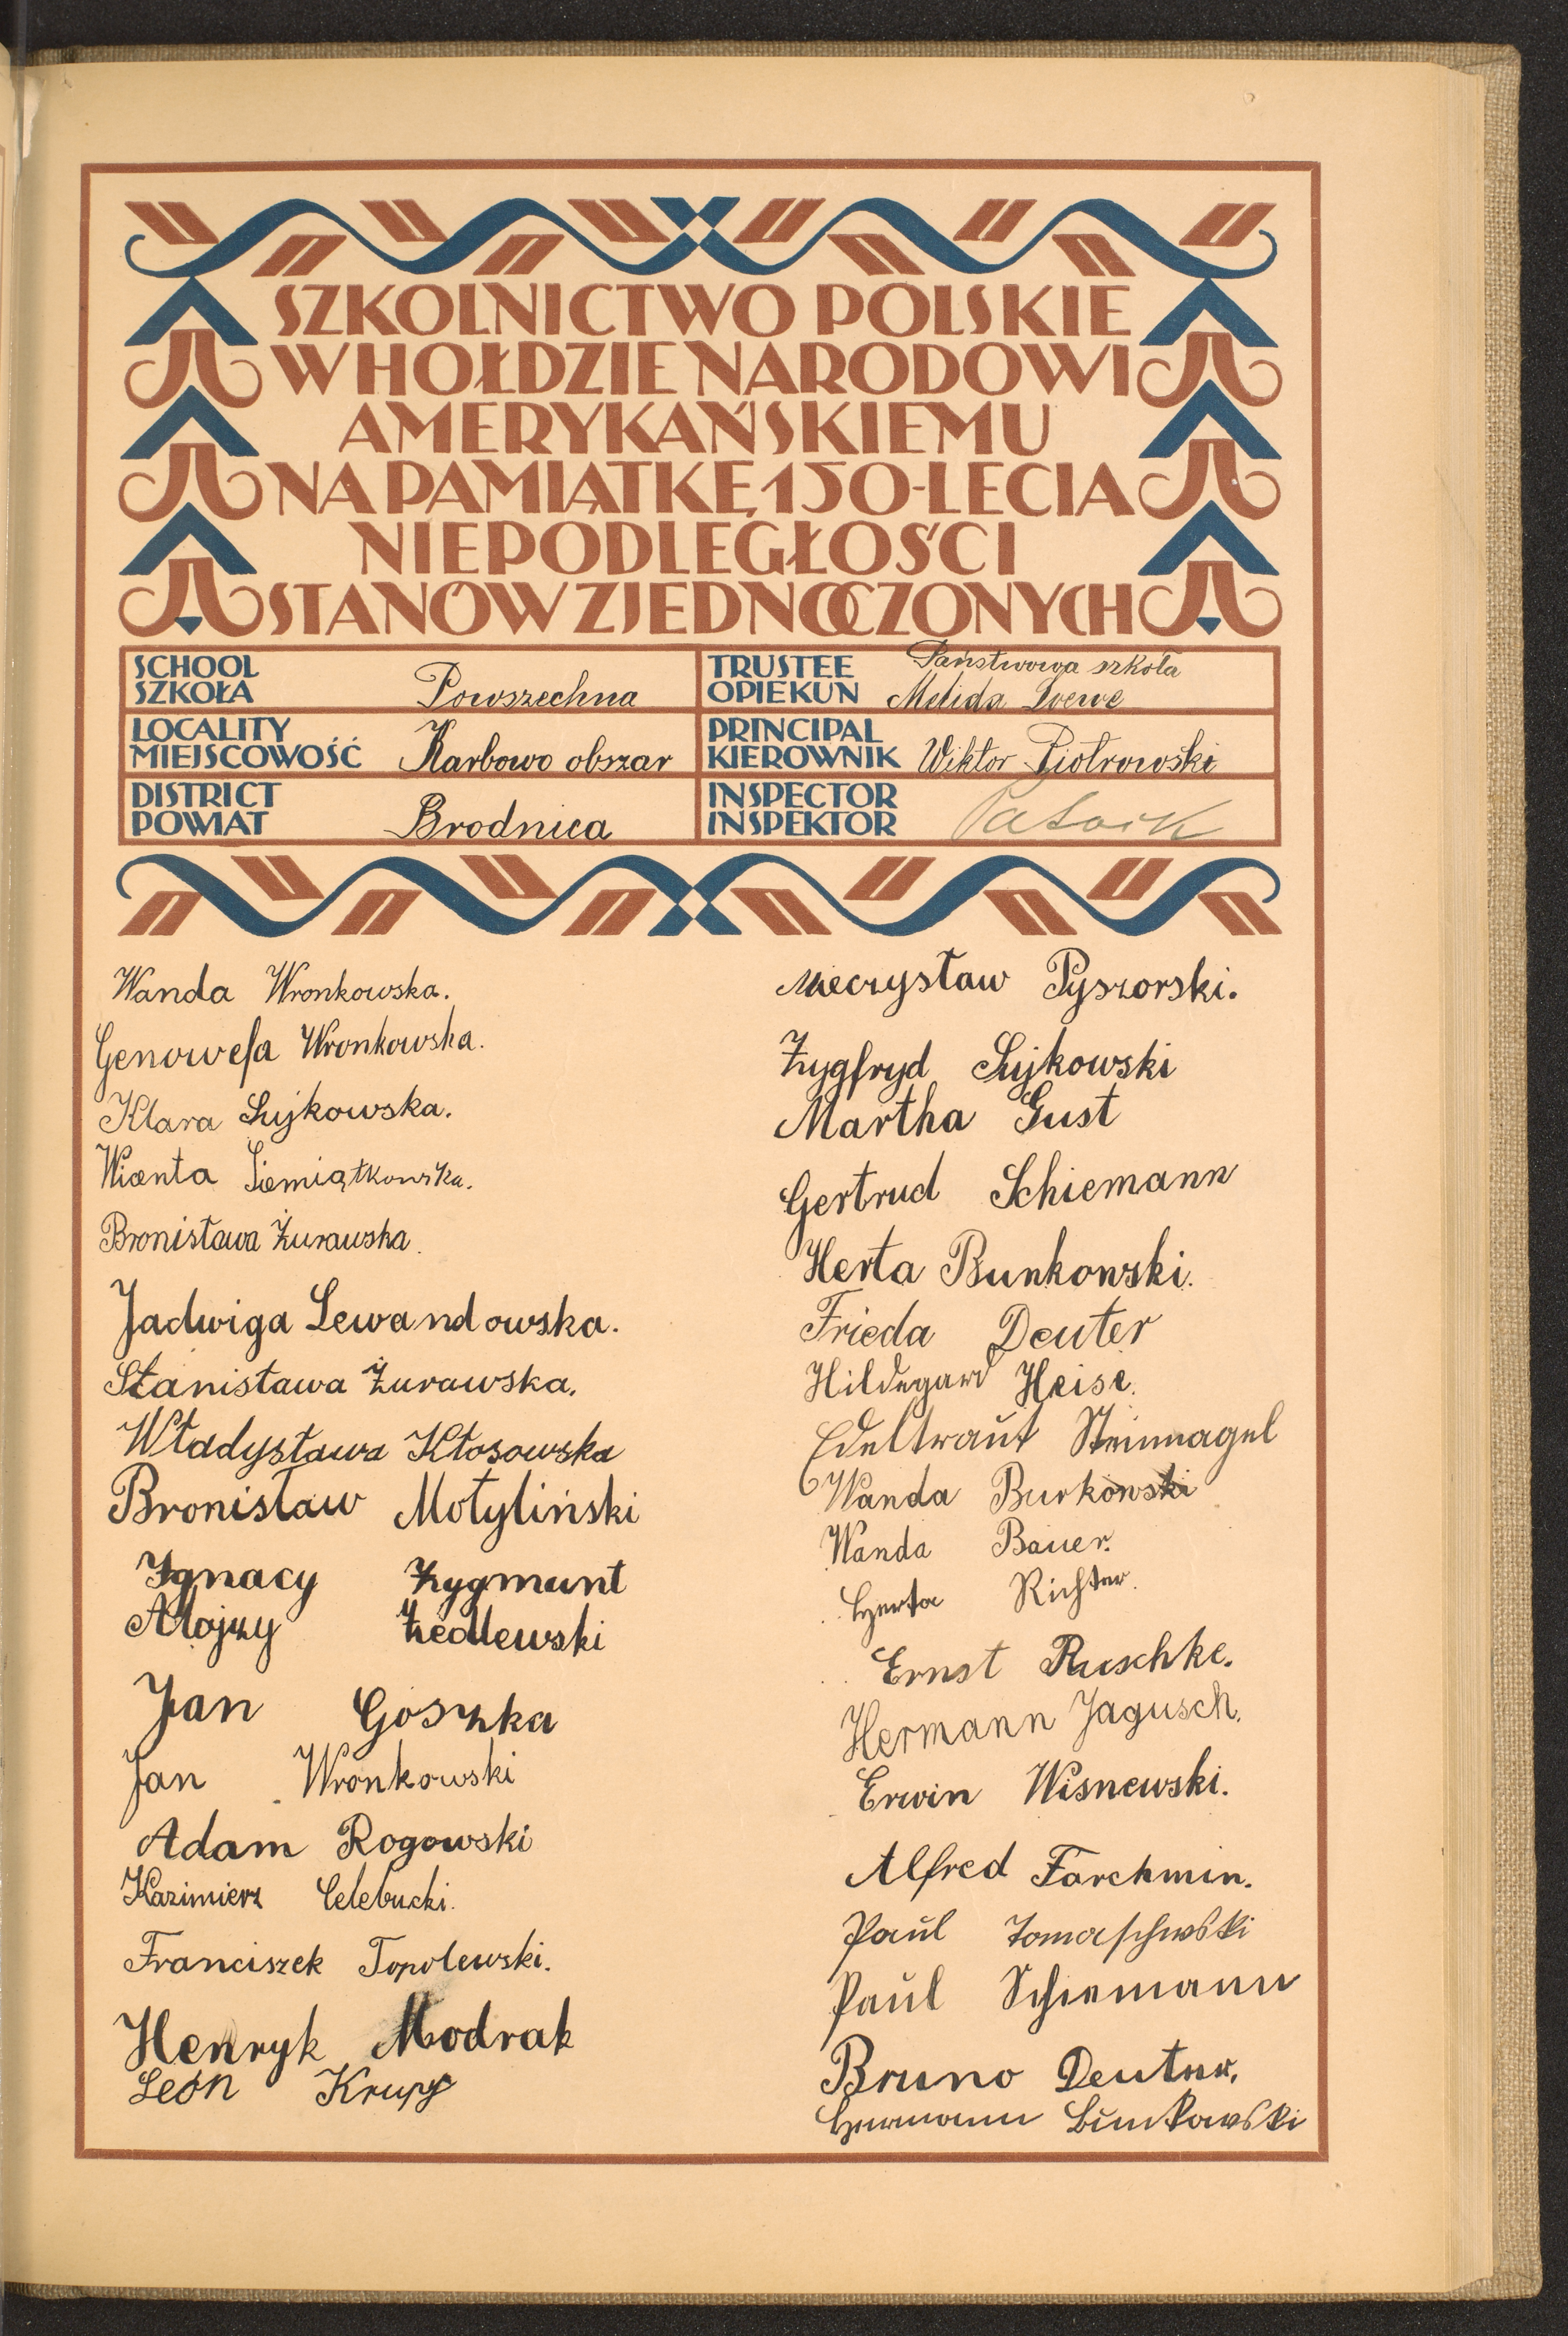 SZKOLNICTWO POLSKIE
W HOŁDZIE NARODOWI
AMERYKAŃSKIEMU
NA PAMIĄTKĘ 150-LECIA
NIEPODLEGŁOŚCI
STANÓW ZJEDNOCZONYCH
SCHOOL
SZKOŁA Powszechna
TRUSTEE Państwowa szkoła
OPIEKUN Melida Loewe
LOCALITY
MIEJSCOWOŚĆ Karbowo obszar
PRINCIPAL
KIEROWNIK Wiktor Piotrowski
DISTRICT
POWIAT Brodnica
INSPECTOR
INSPEKTOR
Wanda Wronkowska.
Genowefa Wronkowska.
Klara Sujkowska.
Siemiątkowska.
Bronisława Żurawska.
Jadwiga Lewandowska.
Stanisława Żurawska.
Władysława Kłosowska
Bronisław Motyliński
Ignacy Zygmunt
Alojzy Żedlewski
Jan Goszka
Jan Wronkowski
Adam Rogowski
Kazimierz Celebucki.
Franciszek Topolewski.
Henryk Modrak
León Krupa
Mieczysław Pyszorski.
Zygfryd Sujkowski
Martha Gust
Gertrud Schiemann
Herta Bunkowski.
Frieda Deuter
Hildegard Heise.
Edeltraut Steinnagel
Wanda Burkowski
Wanda Bauer.
Herta Richter.
Ernst Ruschke.
Hermann Jagusch.
Erwin Wisnewski.
Alfred Farchmin.
Paul Tomaschewski
Paul Schiemann
Bruno Deuter.
Hermann Bunkowski